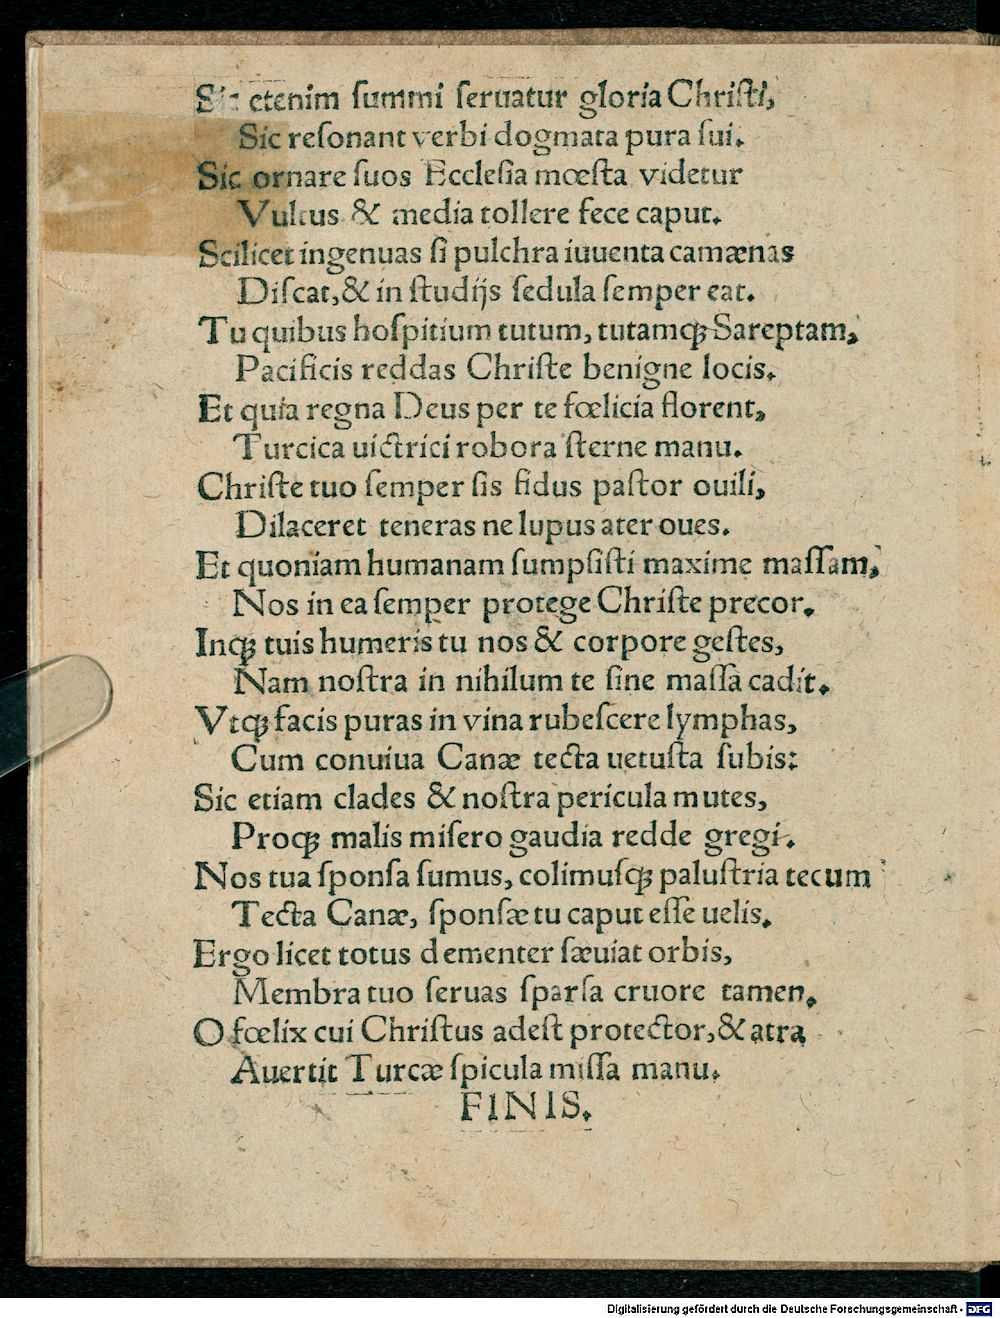 Sic etenim ſummi ſeruatur gloria Chriſti,
Sic reſonant verbi dogmata pura ſui.
Sic ornare ſuos Eccleſia mœſta videtur
Vultus & media tollere fece caput.
Scilicet ingenuas ſi pulchra iuuenta camænas
Diſcat,& in ſtudijs ſedula ſemper eat.
Tu quibus hoſpitium tutum, tutamqꝫ Sareptam,
Pacificis reddas Chriſte benigne locis.
Et quia regna Deus per te fœlicia florent,
Turcica uictrici robora ſterne manu.
Chriſte tuo ſemper ſis fidus paſtor ouili,
Dilaceret teneras ne lupus ater oues.
Et quoniam humanam ſumpſiſti maxime maſſam,
Nos in ea ſemper protege Chriſte precor.
Inqꝫ tuis humeris tu nos & corpore geſtes,
Nam noſtra in nihilum te ſine maſſa cadit.
Vtqꝫ facis puras in vina rubeſcere lymphas,
Cum conuiua Canæ tecta uetuſta ſubis:
Sic etiam clades & noſtra pericula mutes,
Proqꝫ malis miſero gaudia redde gregi.
Nos tua ſponſa ſumus, colimuſqꝫ paluſtria tecum
Tecta Canæ, ſponſæ tu caput eſſe uelis.
Ergo licet totus dementer ſæuiat orbis,
Membra tuo ſeruas ſparſa cruore tamen.
O fœlix cui Chriſtus adeſt protector,& atra
Auertit Turcæ ſpicula miſſa manu.
FINIS.
Digitalisierung gefördert durch die Deutsche Forschungsgemeinschaft - DFG